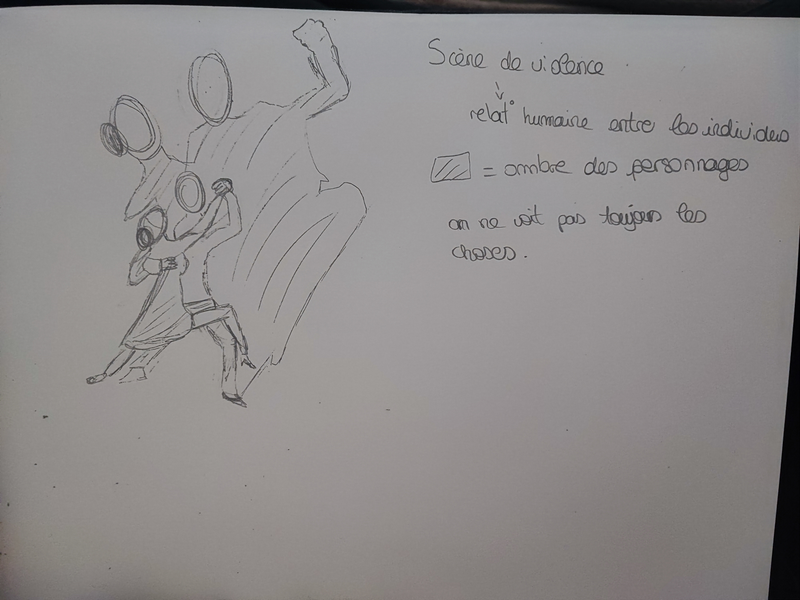 Scène de violence
relat° humaine entre les individus
= ombre des personnages
on ne voit pas toujours les
choses.